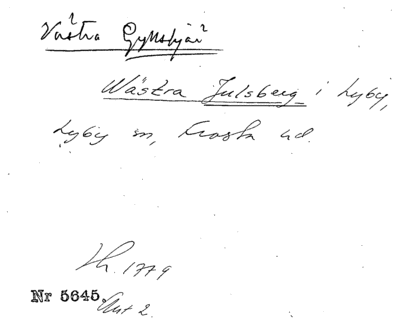 Västra
Wästra Julsberg i Lyby,
Lyby sn, Frosta hd.
1779
Nr 5645.
Akt 2.